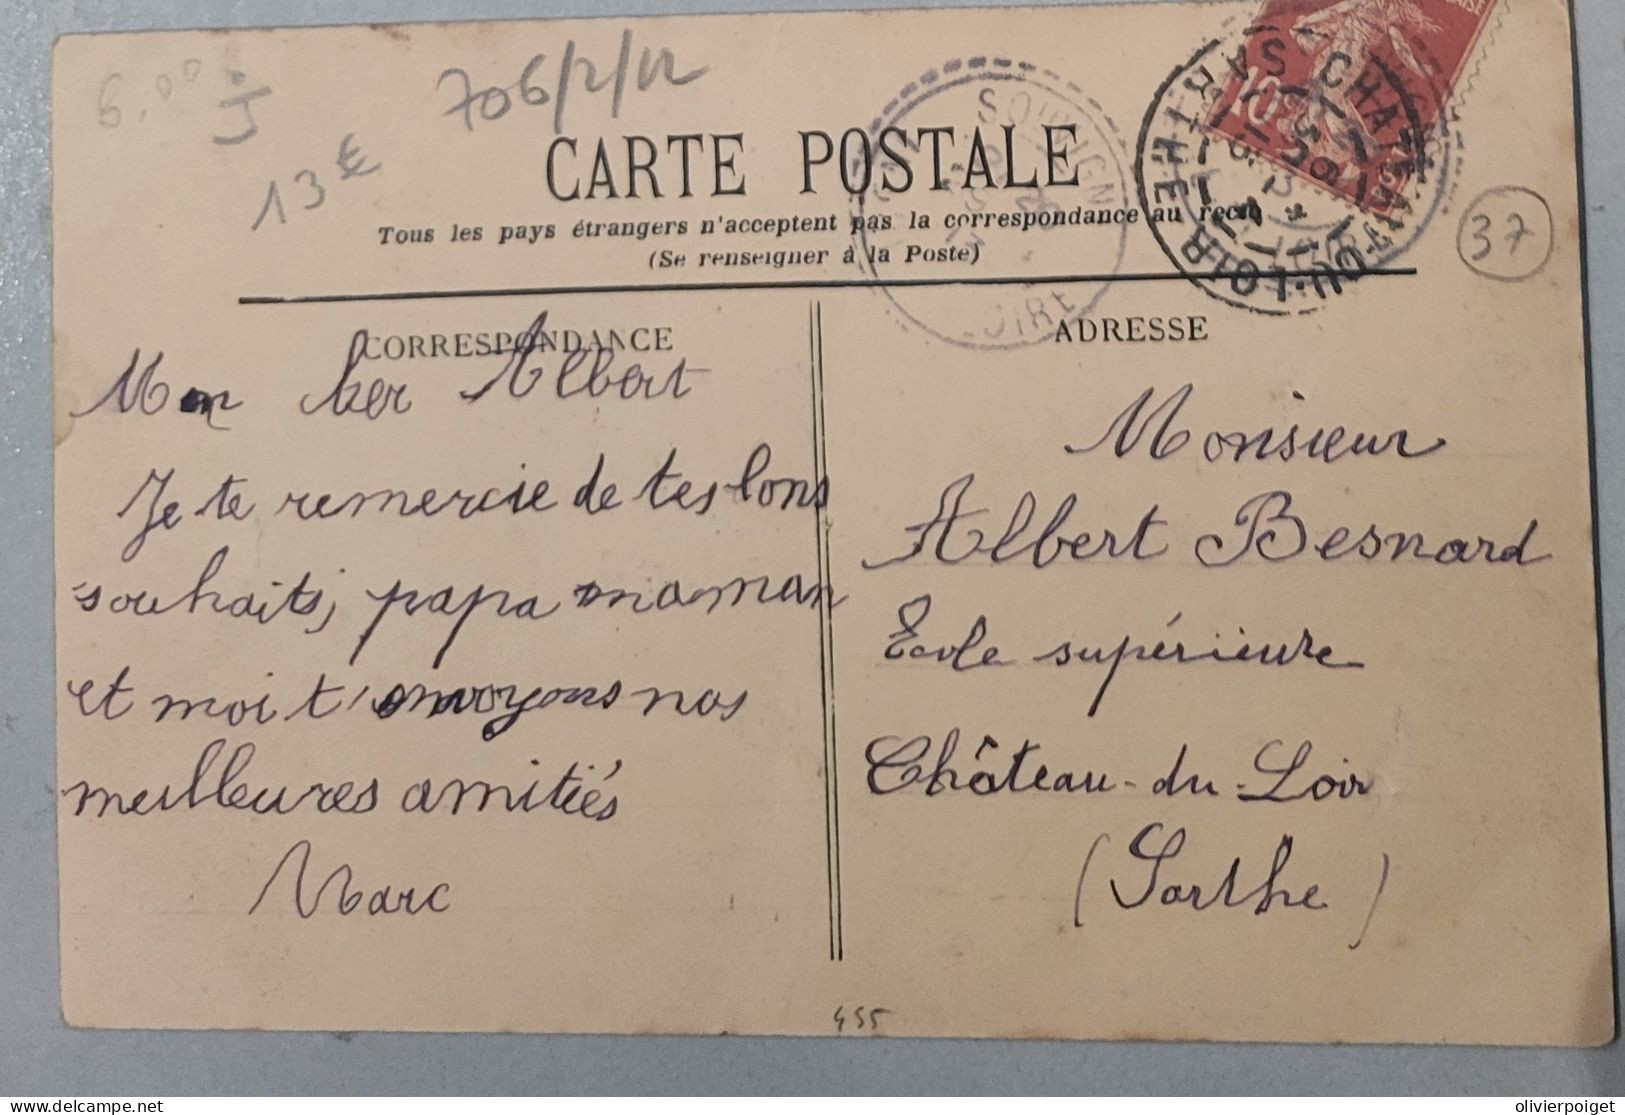 6.00
J
13€
706/2/12
CARTE POSTALE
Tous les pays étrangers n'acceptent pas la correspondance au recto
(Se renseigner à la Poste)
37
10
SOUVIGN
LOIRE
CHATEAU-DU-LOIR
SARTHE
CORRESPONDANCE
Mon her Albert
Je te remercie de tes bons
souhaits, papa maman
et moi t'envoyons nos
meilleures amitiés
Marc
ADRESSE
Monsieur
Albert Besnard
École supérieure
Château-du-Loir
(Sarthe)
455
delcampe.net
olivierpoiget